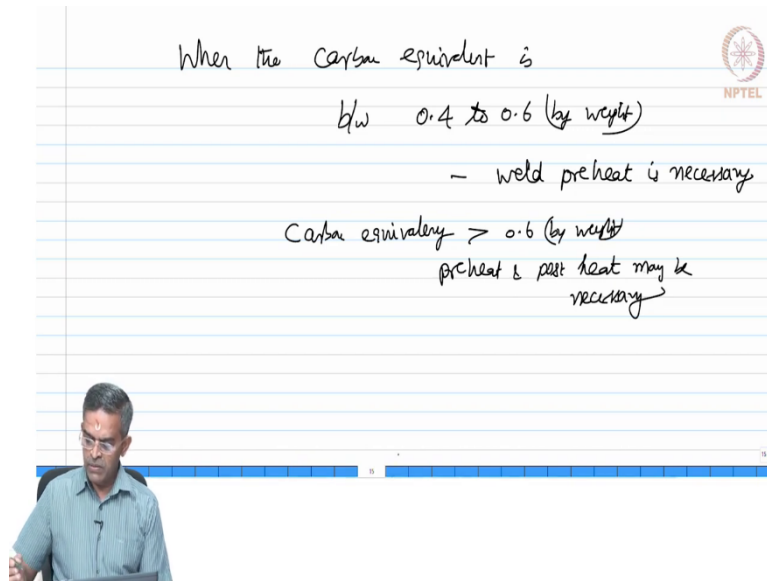 When the Carbon equivalent is
b/w 0.4 to 0.6 (by weight)
- weld preheat is necessary
Carbon equivalency > 0.6 (by weight)
preheat & post heat may be
necessary
NPTEL
15
15